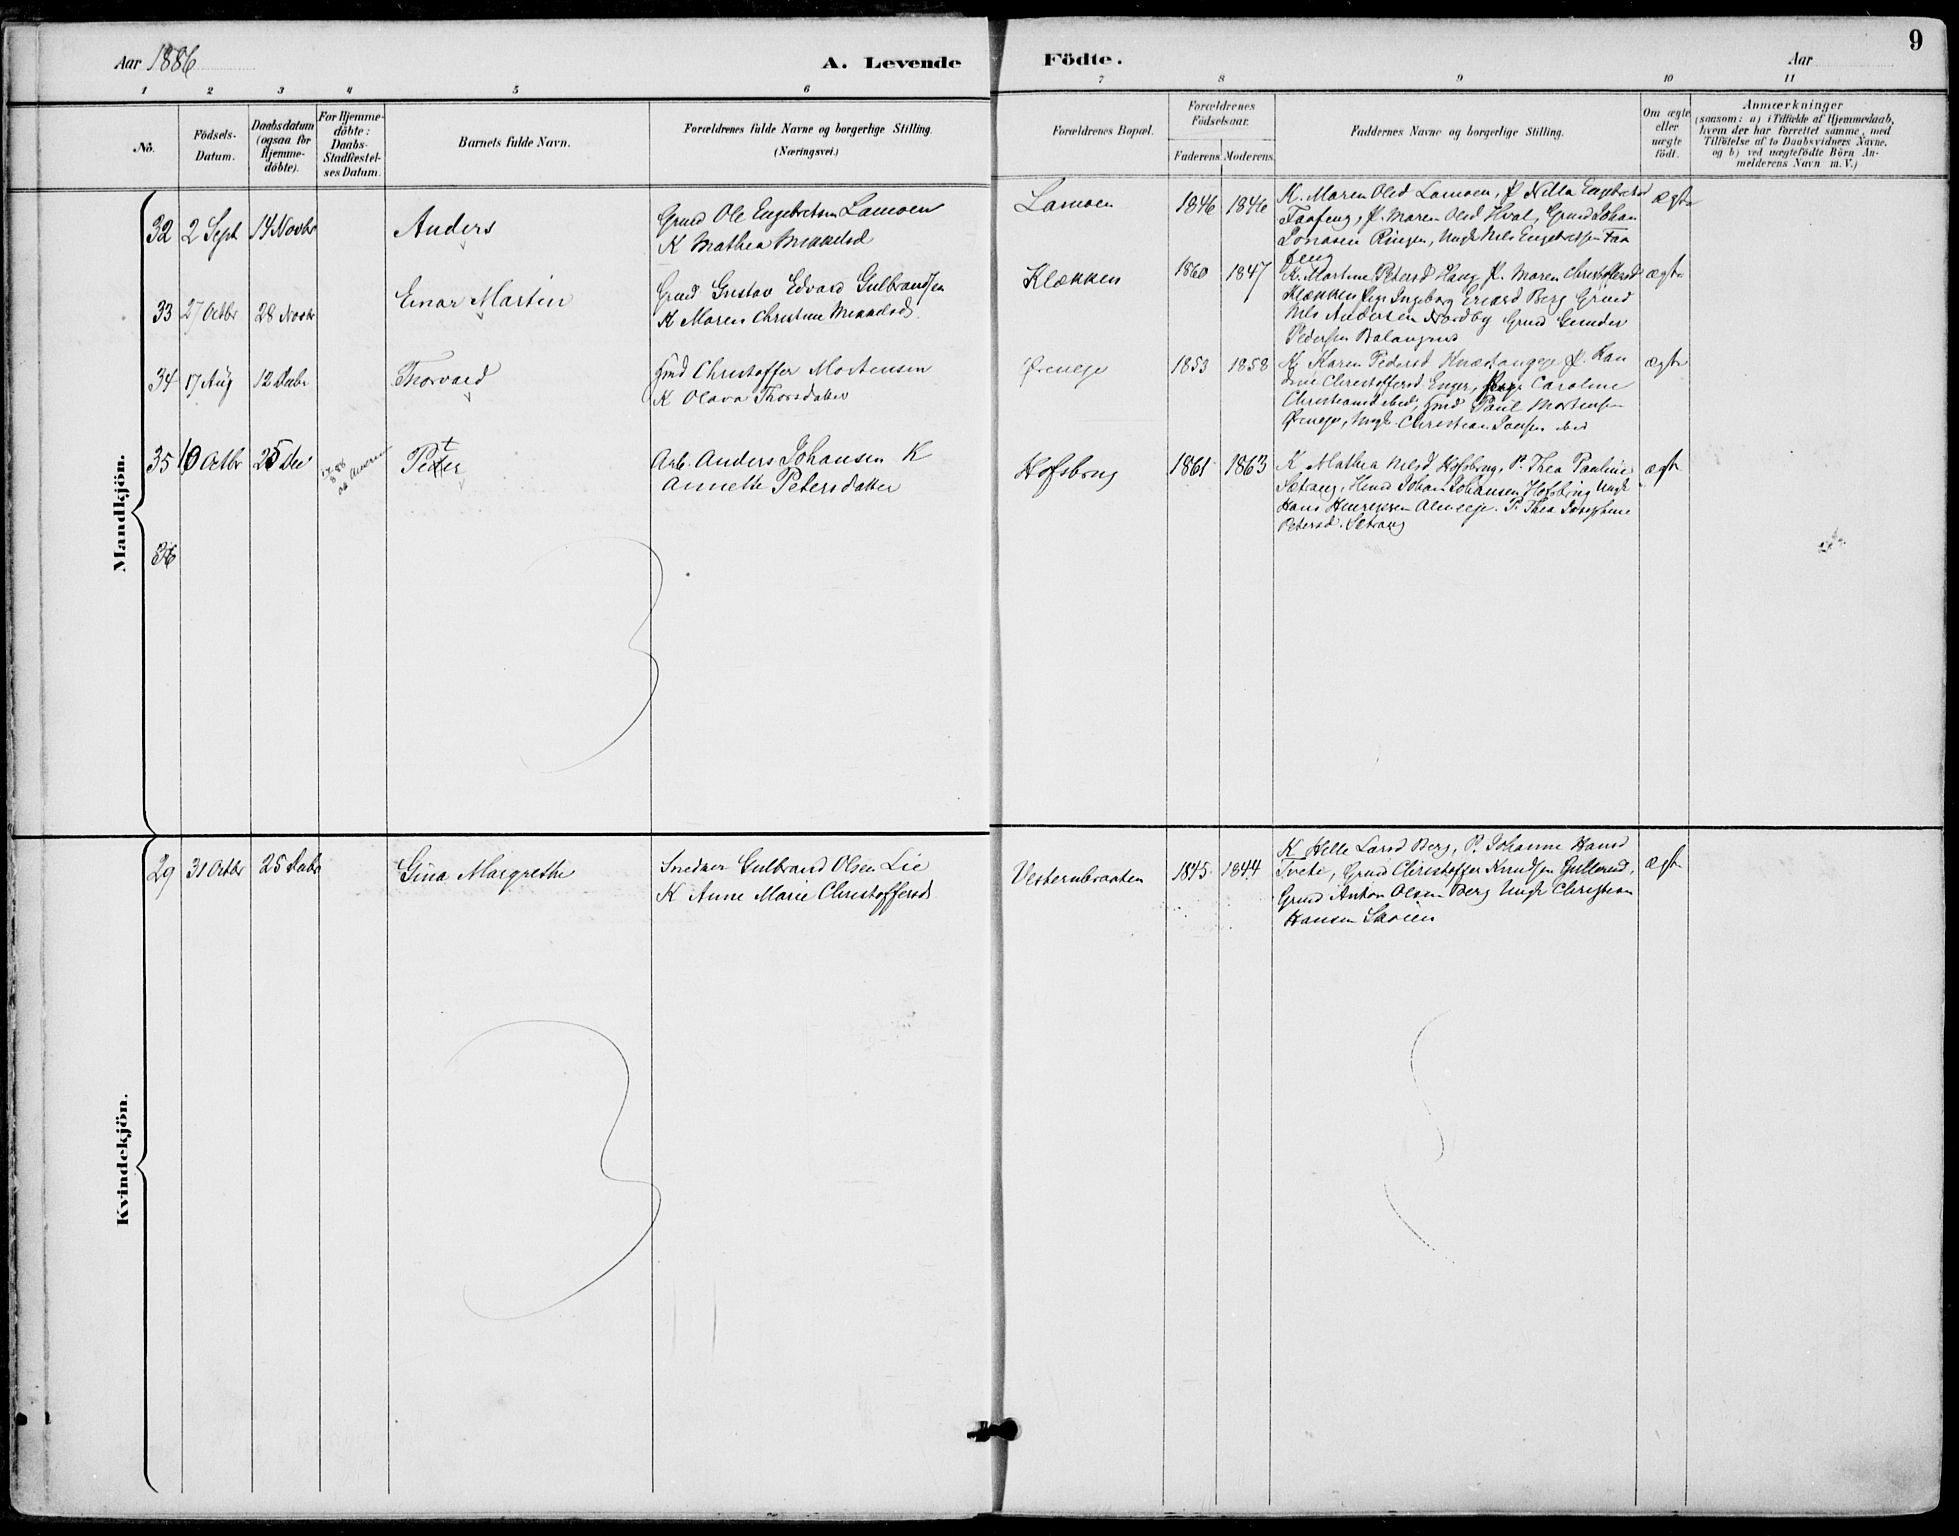 Aar 1886
A. Levende
Födte.
Aar
9
1 2 3 4 5 6 7 8 9 10 11
No.
Födsels-
Datum.
Daabsdatum
(ogsaa for
Hjemme-
döbte).
For Hjemme-
döbte:
Daabs-
Stadfæstel-
ses Datum.
Barnets fulde Navn.
Forældrenes fulde Navne og borgerlige Stilling.
(Næringsvei.)
Forældrenes Bopæl.
Forældrenes
Födselsaar.
Faderens. Moderens.
Faddernes Navne og borgerlige Stilling.
Om ægte
eller
uægte
födt.
Anmærkninger
(saasom: a) i Tilfælde af Hjemmedaab,
hvem der har forrettet samme, med
Tilföielse af to Daabsvidners Navne.
og b) ved uægtefödte Börn An-
melderens Navn m. V.)
Mandkjön.
32 2 Sept 14 Novbr
Anders
Grund Ole Engebretsen Lamoen
K Mathea Mikkelsd
Lamoen
1846 1846
K. Maren Olsd Lamoen, P. Engebretsd
P. Maren Olsd Hval, Grund Johan
Jonasen Ringen, Ungk Nils Engebretsen Faa
feng
ægte
33 27 Octbr 28 Novbr
Einar Martin
Grund Gustav Edvard Gulbrandsen
K Maren Christine Mikkelsd
Klækken
1860 1847
K. Martine Petersd Haug P. Maren Christoffersd
Klækken Pige Ingeborg Berg Grund
Nils Andersen Nordby Grund Gunder
Pedersen
ægte
34 17 Aug 12 Decbr
Thorvald
Hmd Christoffer Mortensen
K Olava Thorsdatter
1853 1858
K. Karen Pedersd P. Kan
dine Christoffersd Enger, Pige Caroline
Christiansd ibid, Hmd Paul Mortensen
Ungk. Christian Jonsen ibid
ægte
35 10 Octbr 25 Dec
Peter
Arb. Anders Johansen K
Annette Petersdatter
Hofsbrug
1861 1863
K Mathea Nilsd Hofsbrug, P. Thea Pauline
Sætrang, Hmd Johan Johansen Hofsbrug Ungk
Hans Henriksen P. Thea Josephine
Petersd. Sætrang
ægte
36
Kvindekjön.
29 31 Octbr 25 Decbr
Gina Margrethe
Snedker Gulbrand Olsen Lie
K Anne Marie Christoffersd
Vesternbraaten
1845 1844
K Helle Larsd Berg, P. Johanne Hansd
Tvete, Grund Christoffer Knudsen Gullerud,
Grund Anton Olsen Berg Ungk Christian
Hansen
ægte